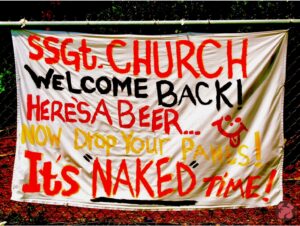 SSGt. CHURCH
WELCOME BACK!
HERE'S A BEER...
NOW DROP YOUR PANTS!
It's "NAKED" TIME!